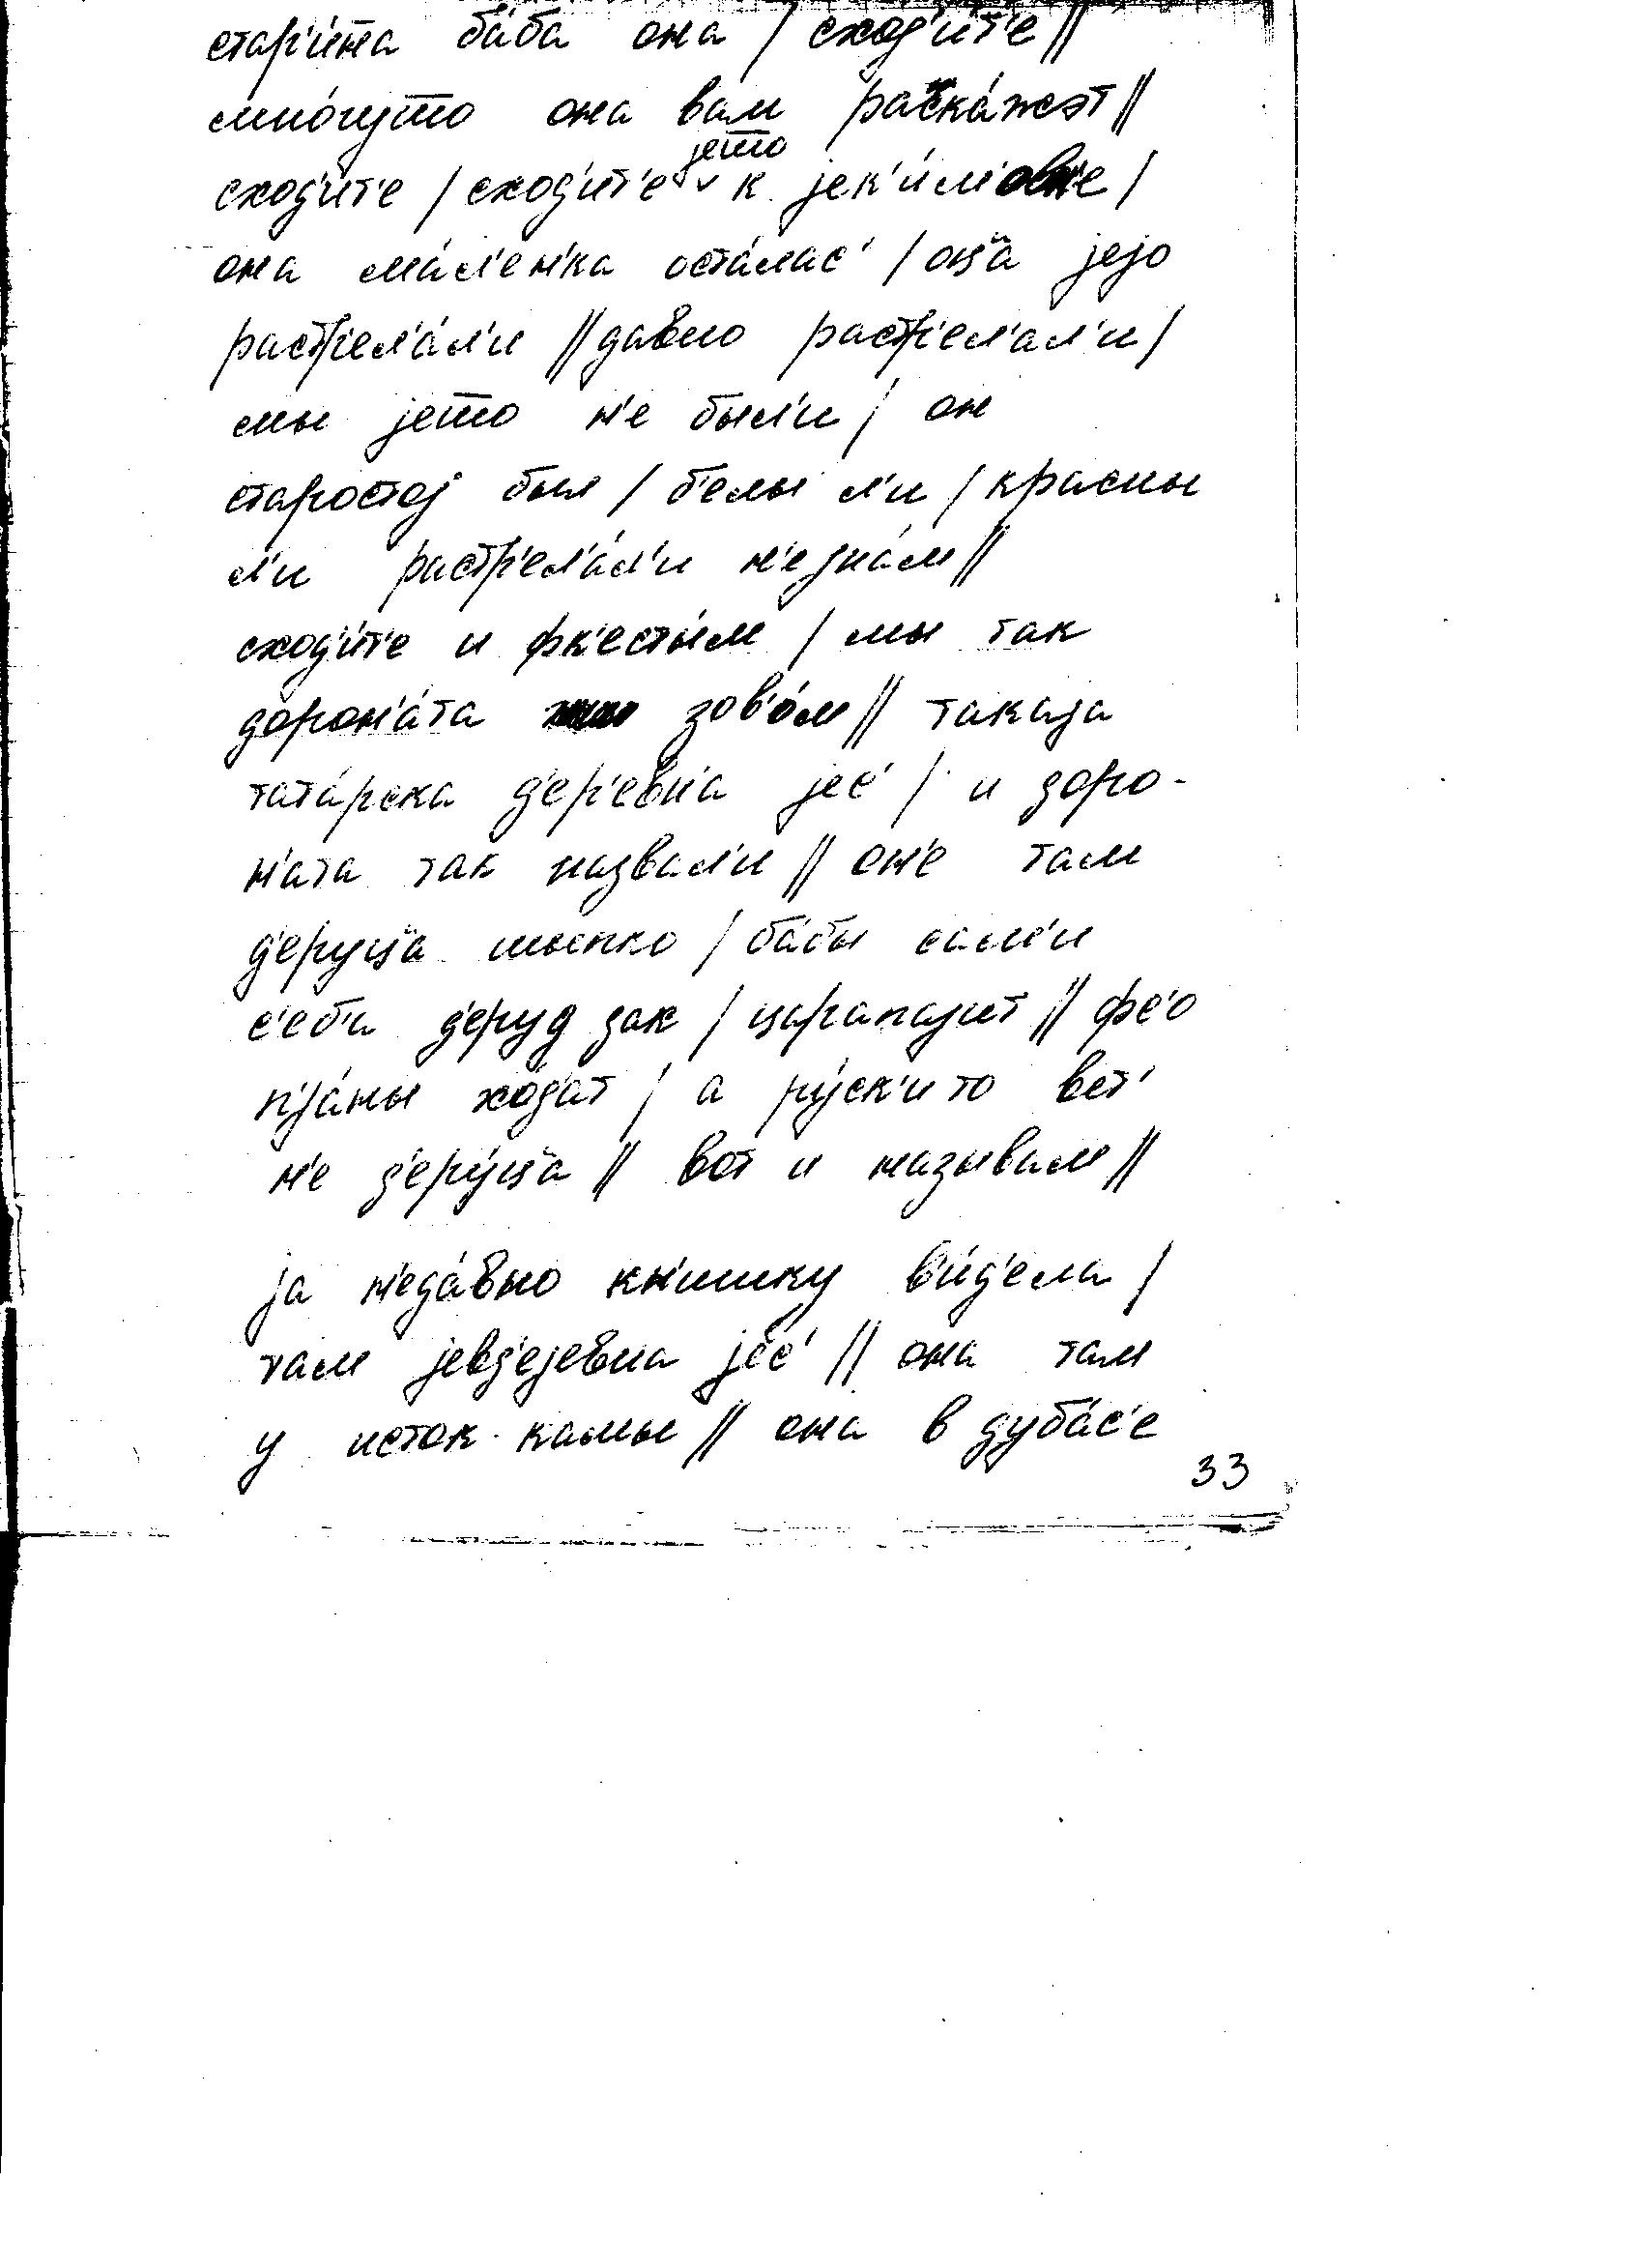 стар'и́нна ба́ба она / сход'и́т'е //
мно́гушто она вам раска́жэт //
сход'и́т'е / сход'ит'е јешто к јек'и́мовн'е /
она ма́л'ен'ка оста́лас' / оца јејо
растр'ел'а́л'и // давно растр'ел'ал'и /
мы јешто н'е был'и / он
старостој был / б'елы л'и / красны
л'и растр'ел'а́л'и н'езна́м //
сход'и́т'е и фк'есты́м / мы так
дорон'а́та зов'о́м // такаја
тата́рска д'ер'евн'а јес' / и доро-
н'ата так назвал'и // он'е там
д'еруца шыпко / ба́бы сам'и
с'еб'а д'еруд зак / царапајут // фс'о
п'ја́ны хо́д'ат / а ру́ск'и то вет'
н'е д'еру́ца // вот и называм //
ја н'еда́вно кн'ишку в'и́д'ела /
там јевд'ејевна јес' // она там
у исток камы // она в дуба́с'е
33